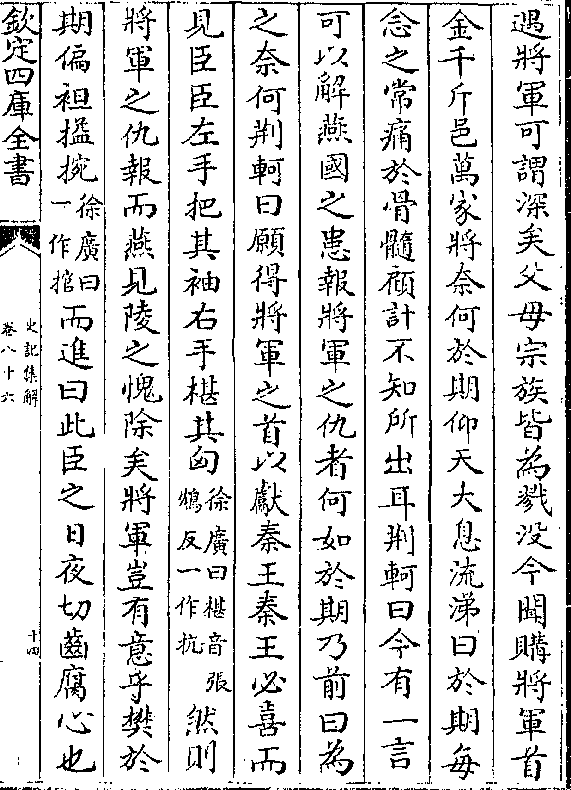 遇將軍可謂深矣父母宗族皆為戮没今聞購將軍首
金千斤邑萬家將奈何於期仰天大息流涕曰於期每
念之常痛於骨髓顧計不知所出耳荆軻曰今有一言
可以解燕國之患報將軍之仇者何如於期乃前曰為
之奈何荆軻曰願得將軍之首以獻秦王秦王必喜而
見臣臣左手把其袖右手椹其匈徐廣曰椹音張鴆反一作抗然則
將軍之仇報而燕見陵之愧除矣將軍豈有意乎樊於
期偏袒搤捥徐廣曰一作捾而進曰此臣之日夜切齒腐心也
欽定四庫全書
史記集解
卷八十六
十四